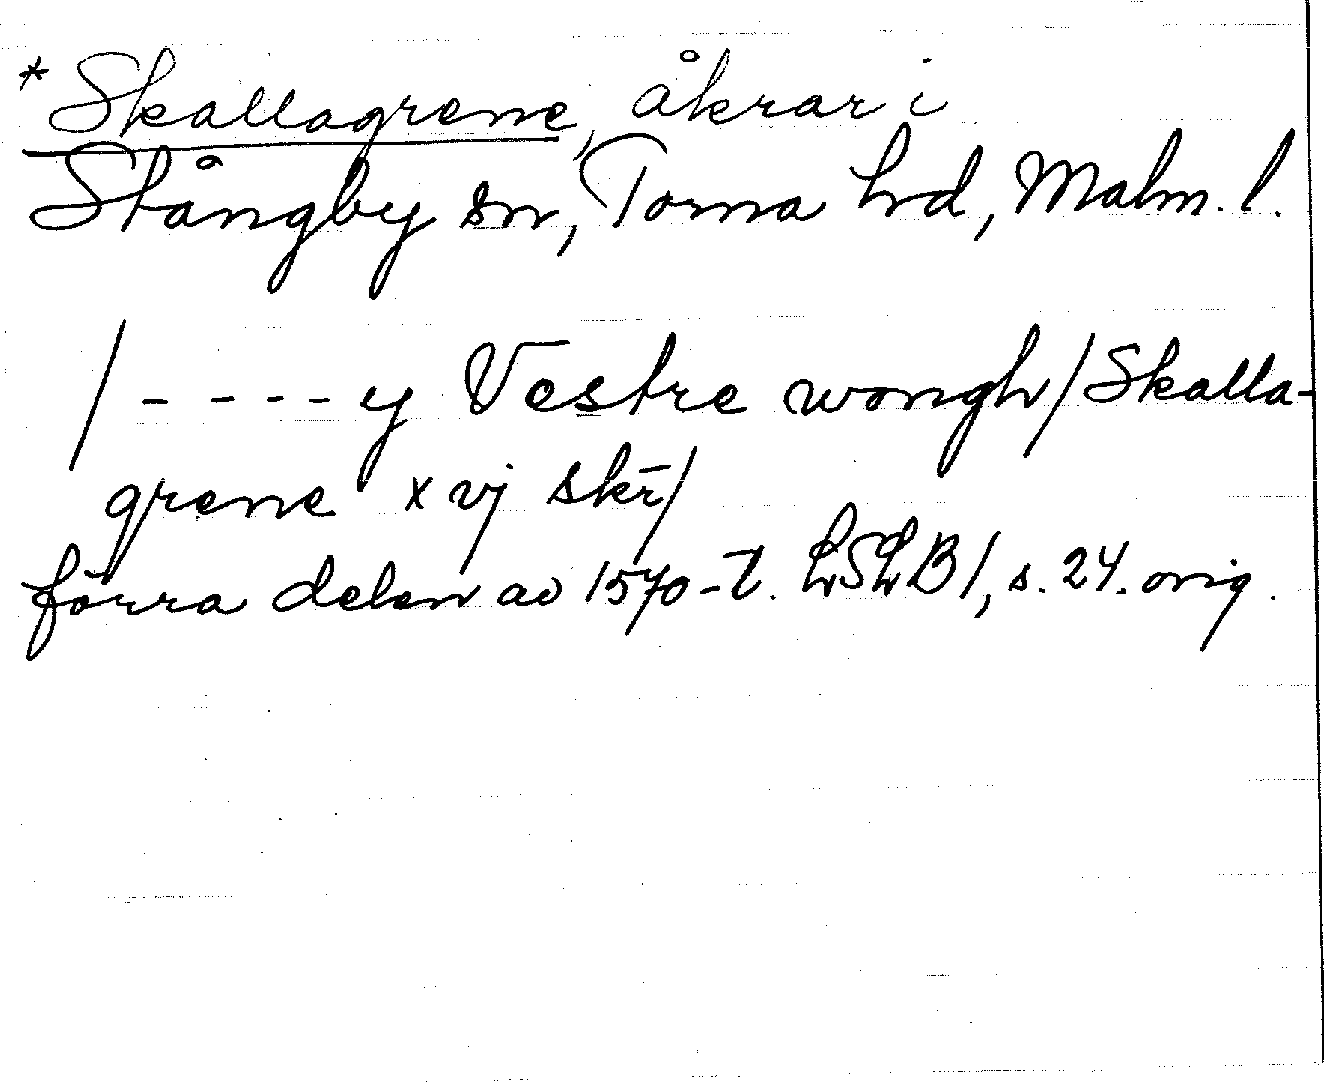 *Skallagrene, åkrar i
Stångby sn, Torna hd, Malm. l.
/----y Vestre wongh/Skalla-
grene xvj skr̄/
förra delen av 1570-t. LSLB1, s. 24. orig.